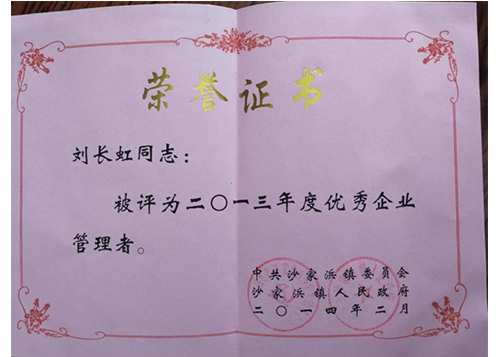 荣誉证书
刘长虹同志：
被评为二〇一三年度优秀企业
管理者。
中共沙家浜镇委员会
沙家浜镇人民政府
二〇一四年二月